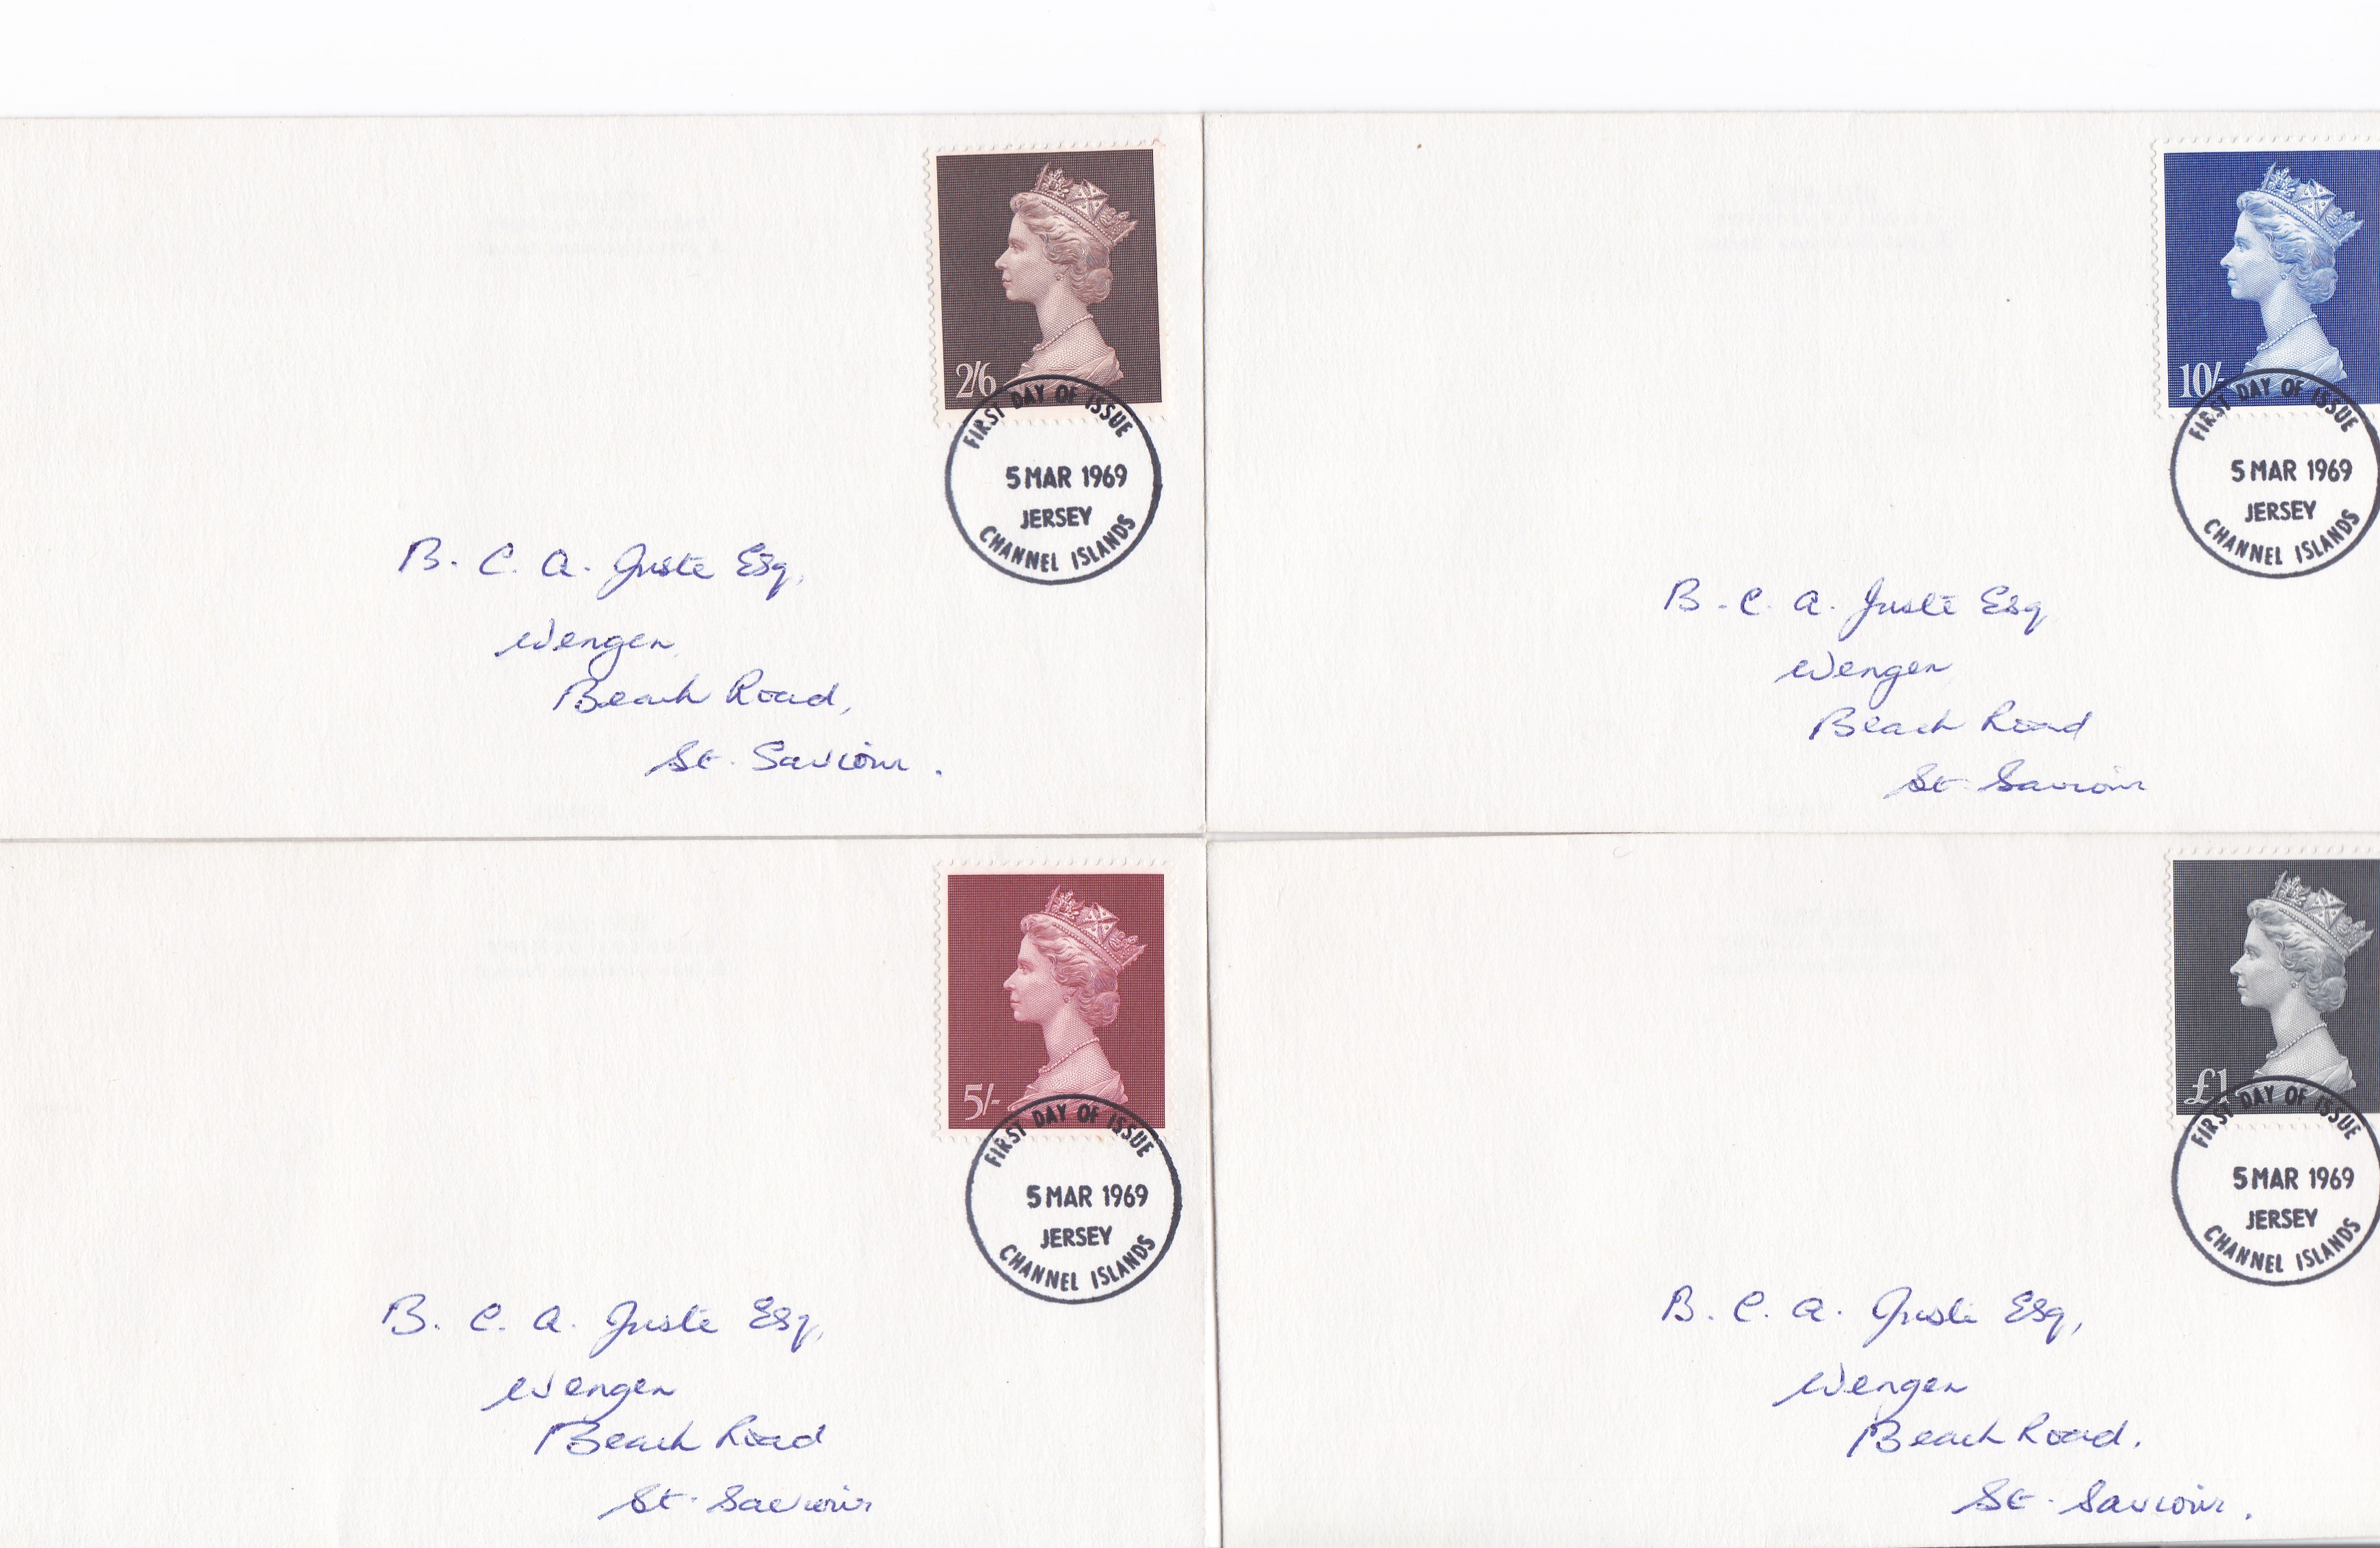 2/6
FIRST DAY OF ISSUE
5 MAR 1969
JERSEY
CHANNEL ISLANDS
B. C. A. Juste Esq,
Wengen
Beach Road,
St. Saviour.
10/-
FIRST DAY OF ISSUE
5 MAR 1969
JERSEY
CHANNEL ISLANDS
B. C. A. Juste Esq
Wengen
Beach Road
St. Saviour
5/-
FIRST DAY OF ISSUE
5 MAR 1969
JERSEY
CHANNEL ISLANDS
B. C. A. Juste Esq,
Wengen
Beach Road
St. Saviour
£1
FIRST DAY OF ISSUE
5 MAR 1969
JERSEY
CHANNEL ISLANDS
B. C. A. Juste Esq,
Wengen
Beach Road.
St. Saviour.